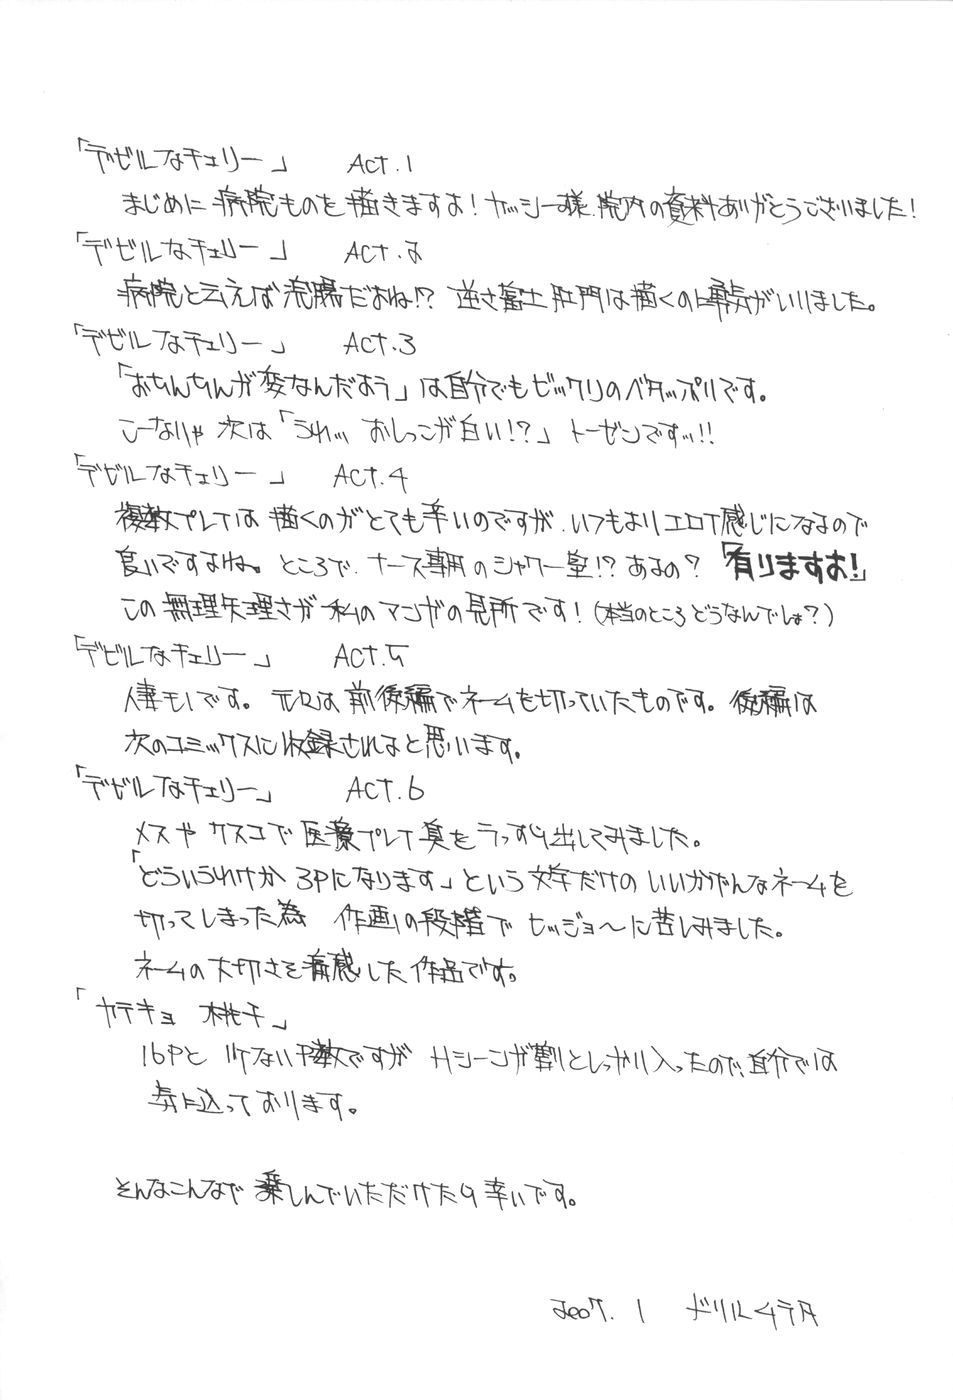 「デビルなチェリー」　Act.1
まじめに病院ものを描きますよ！ヤッシー様、院内の資料ありがとうございました！
「デビルなチェリー」　Act.2
病院と云えば浣腸だよね!? 逆さ富士肛門は描くのに勇気がいりました。
「デビルなチェリー」　Act.3
「おちんちんが変なんだよう」は自分でもビックリのベタップリです。
こーなりゃ次は「うわッ おしっこが白い!?」トーゼンですッ!!
「デビルなチェリー」　Act.4
複数プレイは描くのがとても辛いのですが、いつもよりエロイ感じになるので
良いですよね。ところで、ナース専用のシャワー室!? あるの？「有りますよ!」
この無理矢理さが私のマンガの見所です！(本当のところどうなんでしょ？)
「デビルなチェリー」　Act.5
人妻モノです。元々は前後編でネームを切っていたものです。後編は
次のコミックスに収録されると思います。
「デビルなチェリー」　Act.6
メスやクスコで医療プレイ臭をうっすら出してみました。
「どういうわけか3Pになります」という文字だけのいいかげんなネームを
切ってしまった為 作画の段階でヒッジョ〜に苦しみました。
ネームの大切さを痛感した作品です。
「カテキョ 桃子」
16Pと少ない頁数ですがHシーンが割としっかり入ったので、自分では
気に込っております。
そんなこんなで楽しんでいただけたら幸いです。
2007. 1　ドリルムラタ